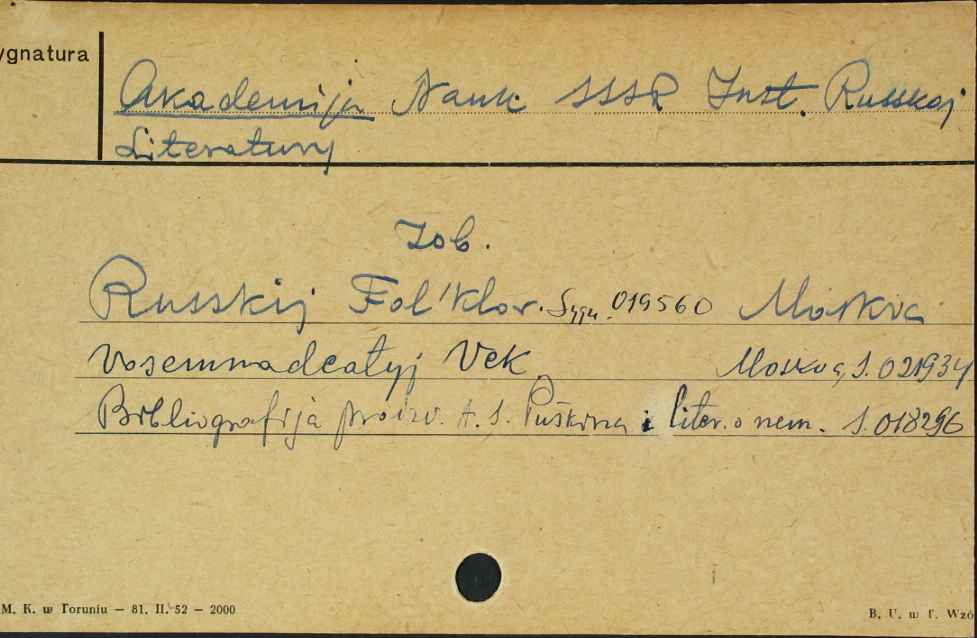 ygnatura
Akademija Nauk SSSR Inst. Russkoj
Literatury
Zob.
Russkij Fol'klor. Sygn. 019560 Moskva
Vosemnadcatyj Vek. Moskva, S. 021934
Bibliografija proizv. A. S. Puškina i liter. o nem. S. 018296
M. K. w Toruniu — 81. II. 52 — 2000
B. U. w T. Wzó